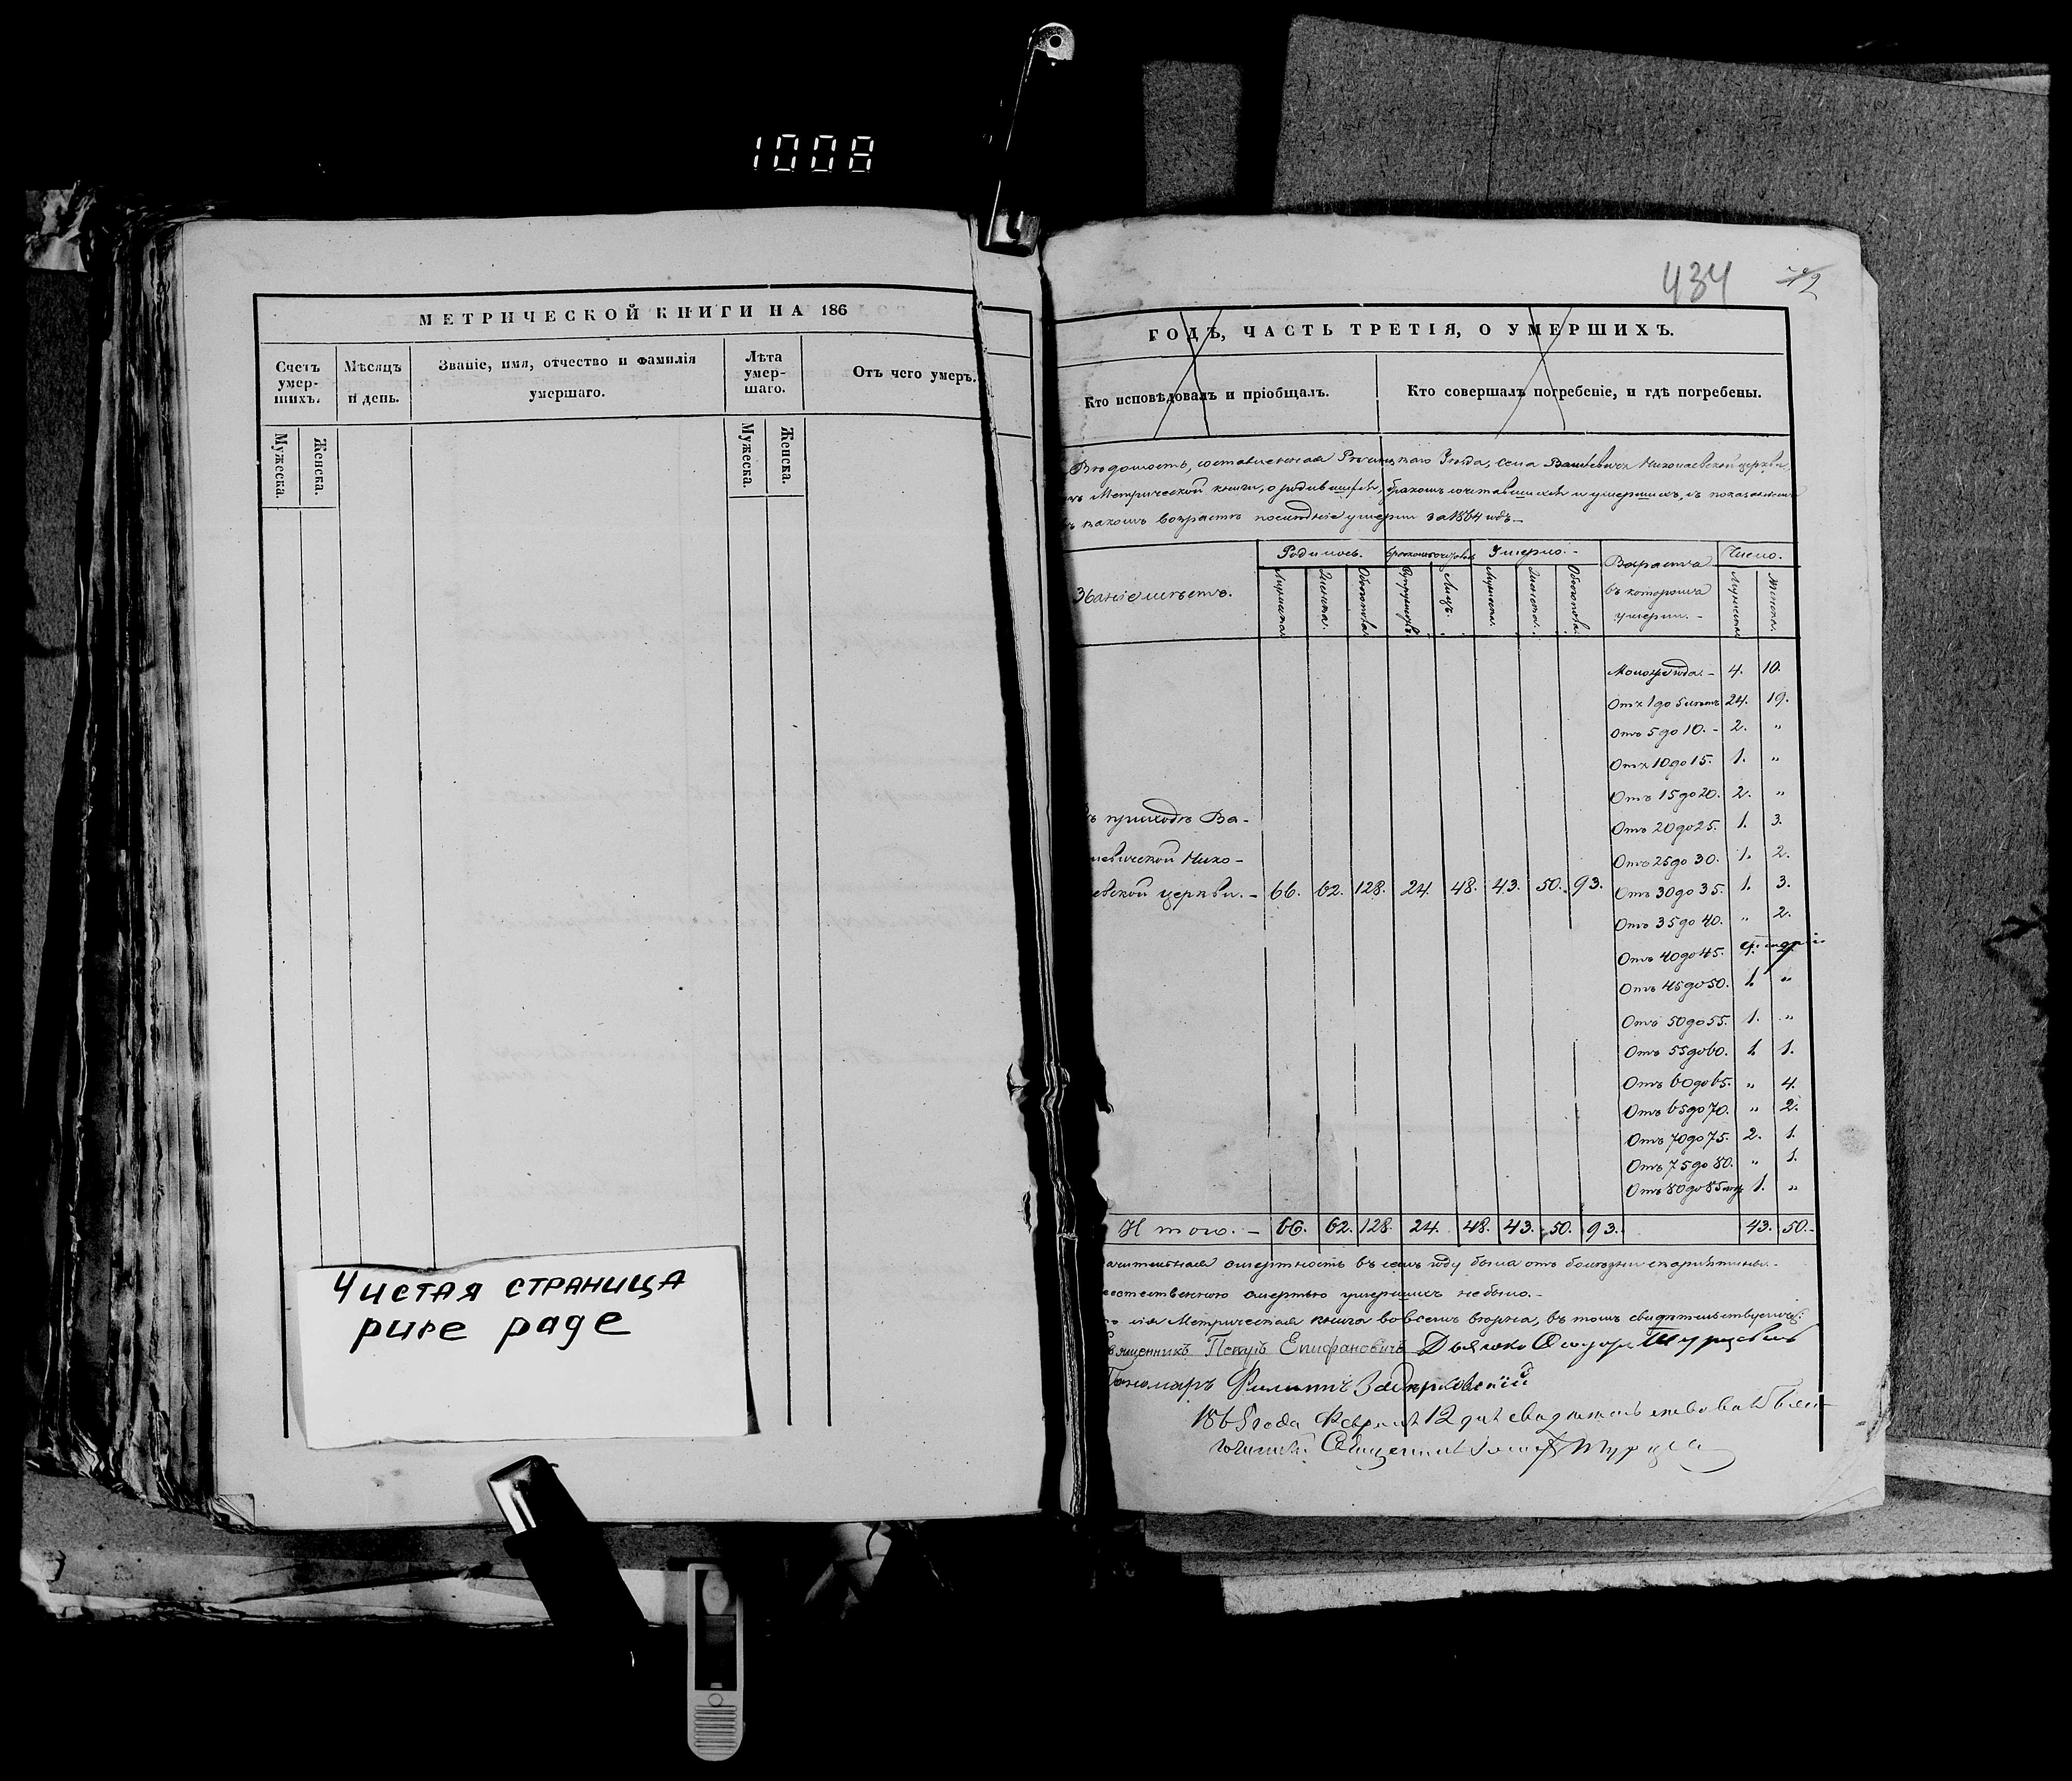 1008
МЕТРИЧЕСКОЙ КНИГИ НА 186
Счетъ умер-шихъ.
Мѣсяцъ и день.
Званіе, имя, отчество и фамилія умершаго.
Лѣта умер-шаго.
Отъ чего умеръ.
Мужеска.
Женска.
Мужеска.
Женска.
Чистая страница
pure page
434
ГОДЪ, ЧАСТЬ ТРЕТІЯ, О УМЕРШИХЪ.
Кто исповѣдовалъ и пріобщалъ.
Кто совершалъ погребеніе, и гдѣ погребены.
Вѣдомость, составленная Рѣчицкаго Уѣзда, села Николаевской церкви,
Метрической книги, о родившихся, бракомъ сочетавшихся и умершихъ, съ показаніемъ
какомъ возрастѣ послѣдніе умерли за 1864 годъ.—
Званіе мѣстъ.
Родилось.
Умерло.—
Возраста въ котораго умерли.—
Число.
Мужеска.
Женска.
Обоего пола.
Супружествъ.
Лицъ.
Мужеска.
Женска.
Обоего пола.
Мужеска.
Женска.
Моложе года.— 4. 10.
Отъ 1 до 5 лѣтъ 24. 19.
Отъ 5 до 10.— 2. "
Отъ 10 до 15. 1. "
Отъ 15 до 20. 2. "
Отъ 20 до 25. 1. 3.
Отъ 25 до 30. 1. 2.
приходѣ Ва-
Нико-
евской церкви.— 66. 62. 128. 24. 48. 43. 50. 93. Отъ 30 до 35. 1. 3.
Отъ 35 до 40. " 2.
Отъ 40 до 45.
Отъ 45 до 50. 1. "
Отъ 50 до 55. 1. "
Отъ 55 до 60. 1. 1.
Отъ 60 до 65. " 4.
Отъ 65 до 70. " 2.
Отъ 70 до 75. 2. 1.
Отъ 75 до 80. " 1.
Отъ 80 до 85 1. "
Итого.— 66. 62. 128. 24. 48. 43. 50. 93. 43. 50.—
смертность въ семъ году была отъ болѣзни скарлатины.—
смертью умершихъ не было.—
сія Метрическая книга во всемъ вѣрна, въ томъ свидѣтельствуемъ:
Священникъ Петръ Епифановичъ
Пономарь Филиппъ
1865 года Февраля 12 дня свидѣтельствовалъ
Священникъ